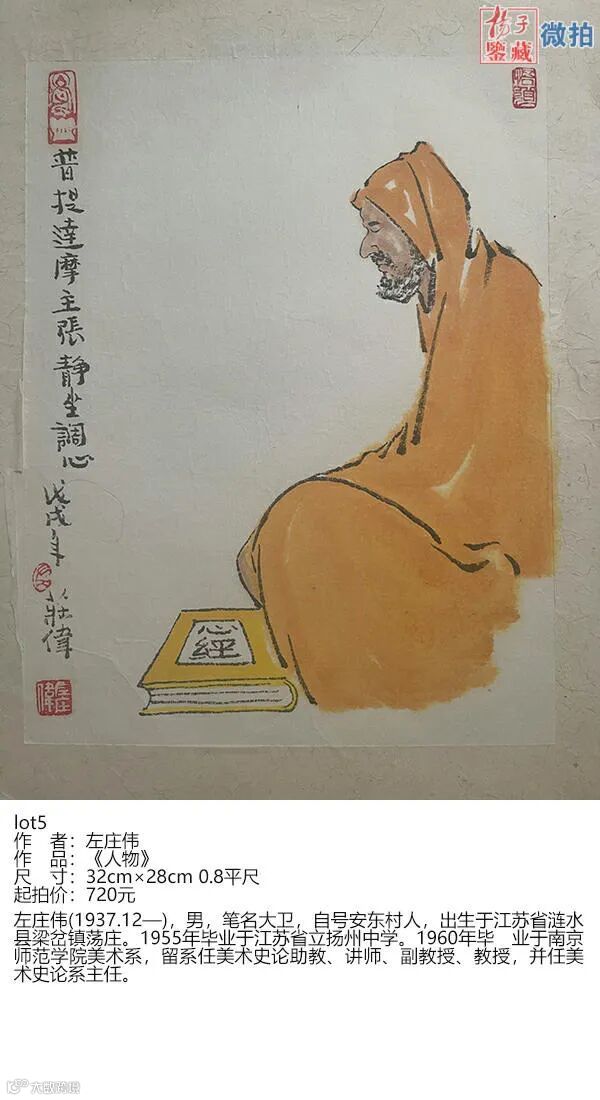 扬子
鉴藏
微拍
普提達摩主張靜坐調心
戊戌年
左莊偉
心
經
lot5
作 者：左庄伟
作 品：《人物》
尺 寸：32cm×28cm 0.8平尺
起拍价：720元
左庄伟(1937.12—)，男，笔名大卫，自号安东村人，出生于江苏省涟水
县梁岔镇荡庄。1955年毕业于江苏省立扬州中学。1960年毕 业于南京
师范学院美术系，留系任美术史论助教、讲师、副教授、教授，并任美
术史论系主任。
大数跨境